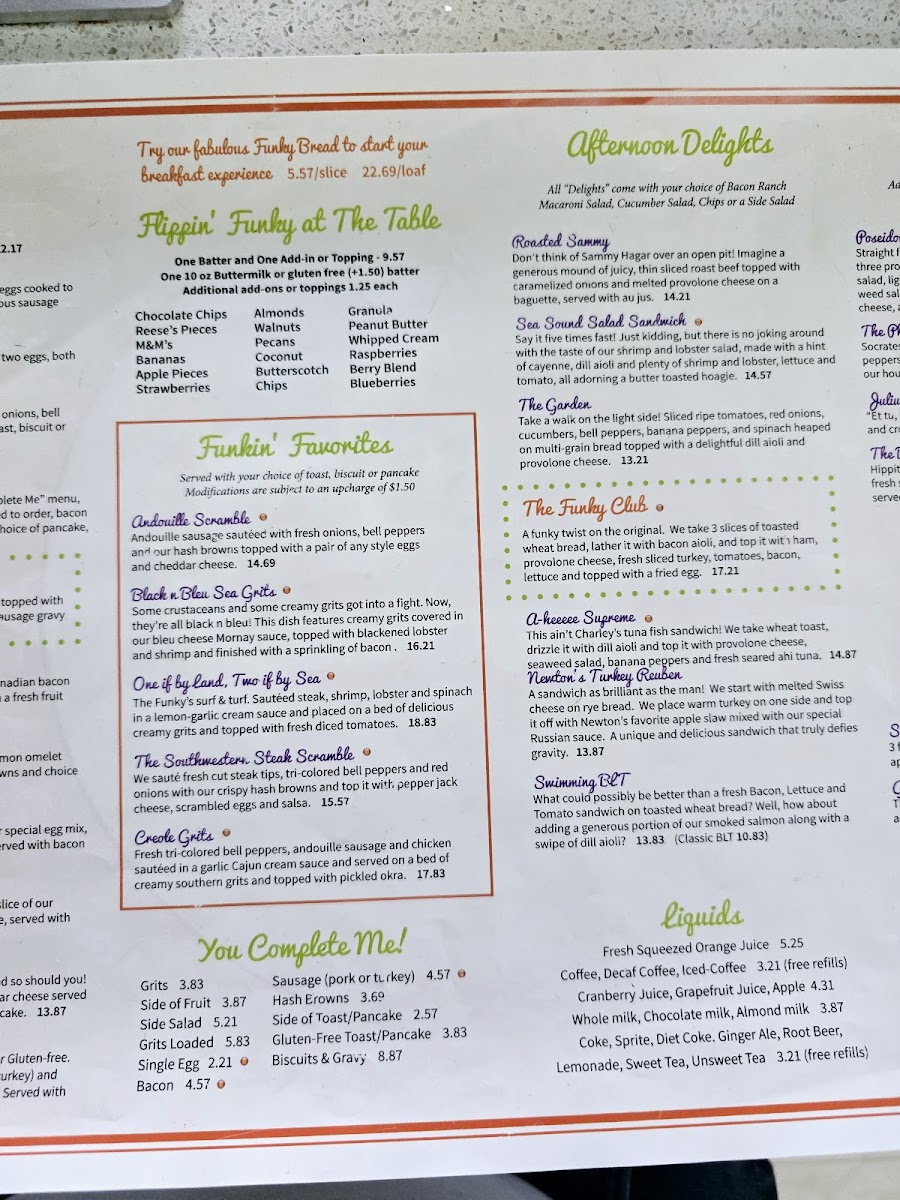 2.17
eggs cooked to
ous sausage
two eggs, both
onions, bell
ast, biscuit or
plete Me" menu,
d to order, bacon
hoice of pancake,
topped with
ausage gravy
nadian bacon
a fresh fruit
mon omelet
wns and choice
r special egg mix,
erved with bacon
slice of our
e, served with
d so should you!
ar cheese served
cake. 13.87
r Gluten-free.
urkey) and
Served with
Try our fabulous Funky Bread to start your
breakfast experience 5.57/slice 22.69/loaf
Flippin' Funky at The Table
One Batter and One Add-in or Topping - 9.57
One 10 oz Buttermilk or gluten free (+1.50) batter
Additional add-ons or toppings 1.25 each
Chocolate Chips
Reese's Pieces
M&M's
Bananas
Apple Pieces
Strawberries
Almonds
Walnuts
Pecans
Coconut
Butterscotch
Chips
Granola
Peanut Butter
Whipped Cream
Raspberries
Berry Blend
Blueberries
Funkin' Favorites
Served with your choice of toast, biscuit or pancake
Modifications are subject to an upcharge of $1.50
Andouille Scramble
Andouille sausage sautéed with fresh onions, bell peppers
and our hash browns topped with a pair of any style eggs
and cheddar cheese. 14.69
Black n Bleu Sea Grits
Some crustaceans and some creamy grits got into a fight. Now,
they're all black n bleu! This dish features creamy grits covered in
our bleu cheese Mornay sauce, topped with blackened lobster
and shrimp and finished with a sprinkling of bacon . 16.21
One if by Land, Two if by Sea
The Funky's surf & turf. Sautéed steak, shrimp, lobster and spinach
in a lemon-garlic cream sauce and placed on a bed of delicious
creamy grits and topped with fresh diced tomatoes. 18.83
The Southwestern Steak Scramble
We sauté fresh cut steak tips, tri-colored bell peppers and red
onions with our crispy hash browns and top it with pepper jack
cheese, scrambled eggs and salsa. 15.57
Creole Grits
Fresh tri-colored bell peppers, andouille sausage and chicken
sautéed in a garlic Cajun cream sauce and served on a bed of
creamy southern grits and topped with pickled okra. 17.83
You Complete Me!
Grits 3.83
Side of Fruit 3.87
Side Salad 5.21
Grits Loaded 5.83
Single Egg 2.21
Bacon 4.57
Sausage (pork or turkey) 4.57
Hash Browns 3.69
Side of Toast/Pancake 2.57
Gluten-Free Toast/Pancake 3.83
Biscuits & Gravy 8.87
Afternoon Delights
All "Delights" come with your choice of Bacon Ranch
Macaroni Salad, Cucumber Salad, Chips or a Side Salad
Roasted Sammy
Don't think of Sammy Hagar over an open pit! Imagine a
generous mound of juicy, thin sliced roast beef topped with
caramelized onions and melted provolone cheese on a
baguette, served with au jus. 14.21
Sea Sound Salad Sandwich
Say it five times fast! Just kidding, but there is no joking around
with the taste of our shrimp and lobster salad, made with a hint
of cayenne, dill aioli and plenty of shrimp and lobster, lettuce and
tomato, all adorning a butter toasted hoagie. 14.57
The Garden
Take a walk on the light side! Sliced ripe tomatoes, red onions,
cucumbers, bell peppers, banana peppers, and spinach heaped
on multi-grain bread topped with a delightful dill aioli and
provolone cheese. 13.21
The Funky Club
A funky twist on the original. We take 3 slices of toasted
wheat bread, lather it with bacon aioli, and top it with ham,
provolone cheese, fresh sliced turkey, tomatoes, bacon,
lettuce and topped with a fried egg. 17.21
A-heeeee Supreme
This ain't Charley's tuna fish sandwich! We take wheat toast,
drizzle it with dill aioli and top it with provolone cheese,
seaweed salad, banana peppers and fresh seared ahi tuna. 14.87
Newton's Turkey Reuben
A sandwich as brilliant as the man! We start with melted Swiss
cheese on rye bread. We place warm turkey on one side and top
it off with Newton's favorite apple slaw mixed with our special
Russian sauce. A unique and delicious sandwich that truly defies
gravity. 13.87
Swimming BLT
What could possibly be better than a fresh Bacon, Lettuce and
Tomato sandwich on toasted wheat bread? Well, how about
adding a generous portion of our smoked salmon along with a
swipe of dill aioli? 13.83 (Classic BLT 10.83)
Liquids
Fresh Squeezed Orange Juice 5.25
Coffee, Decaf Coffee, Iced-Coffee 3.21 (free refills)
Cranberry Juice, Grapefruit Juice, Apple 4.31
Whole milk, Chocolate milk, Almond milk 3.87
Coke, Sprite, Diet Coke. Ginger Ale, Root Beer,
Lemonade, Sweet Tea, Unsweet Tea 3.21 (free refills)
Ad
Poseido
Straight f
three pro
salad, lig
weed sal
cheese, a
The Ph
Socrates
peppers
our hou
Juliu
"Et tu,
and cro
The B
Hippit
fresh s
serve
S
3 f
ap